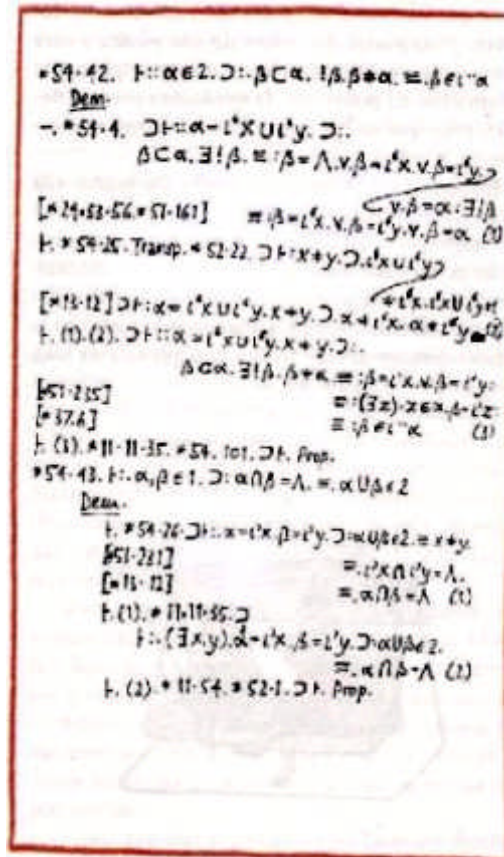 *54·42. ⊢::α∈2.⊃:.β⊂α.!β.β≠α.≡.β∈ι“α
Dem.
⊢.*54·4. ⊃⊢::α=ι‘x∪ι‘y.⊃:.
β⊂α.∃!β.≡:β=Λ.v.β=ι‘x.v.β=ι‘y.
v.β=α:∃!β
[*24·53·56.*51·161] ≡:β=ι‘x.v.β=ι‘y.v.β=α (1)
⊢.*54·25.Transp.*52·22.⊃⊢:x≠y.⊃.ι‘x∪ι‘y
≠ι‘x.ι‘x∪ι‘y≠
[*13·12]⊃⊢:α=ι‘x∪ι‘y.x≠y.⊃.α≠ι‘x.α≠ι‘y (2)
⊢.(1).(2).⊃⊢::α=ι‘x∪ι‘y.x≠y.⊃:.
β⊂α.∃!β.β≠α.≡:β=ι‘x.v.β=ι‘y:
[*51·235] ≡:(∃z).z∈α.β=ι‘z:
[*37·6] ≡:β∈ι“α (3)
⊢.(3).*11·11·35.*54·101.⊃⊢.Prop.
*54·43.⊢:.α,β∈1.⊃:α∩β=Λ.≡.α∪β∈2
Dem.
⊢.*54·26.⊃⊢:.α=ι‘x.β=ι‘y.⊃:α∪β∈2.≡.x≠y.
[*51·231] ≡.ι‘x∩ι‘y=Λ.
[*13·12] ≡.α∩β=Λ (1)
⊢.(1).*11·11·35.⊃
⊢:.(∃x,y).α=ι‘x.β=ι‘y.⊃:α∪β∈2.
≡.α∩β=Λ (2)
⊢.(2).*11·54.*52·1.⊃⊢.Prop.